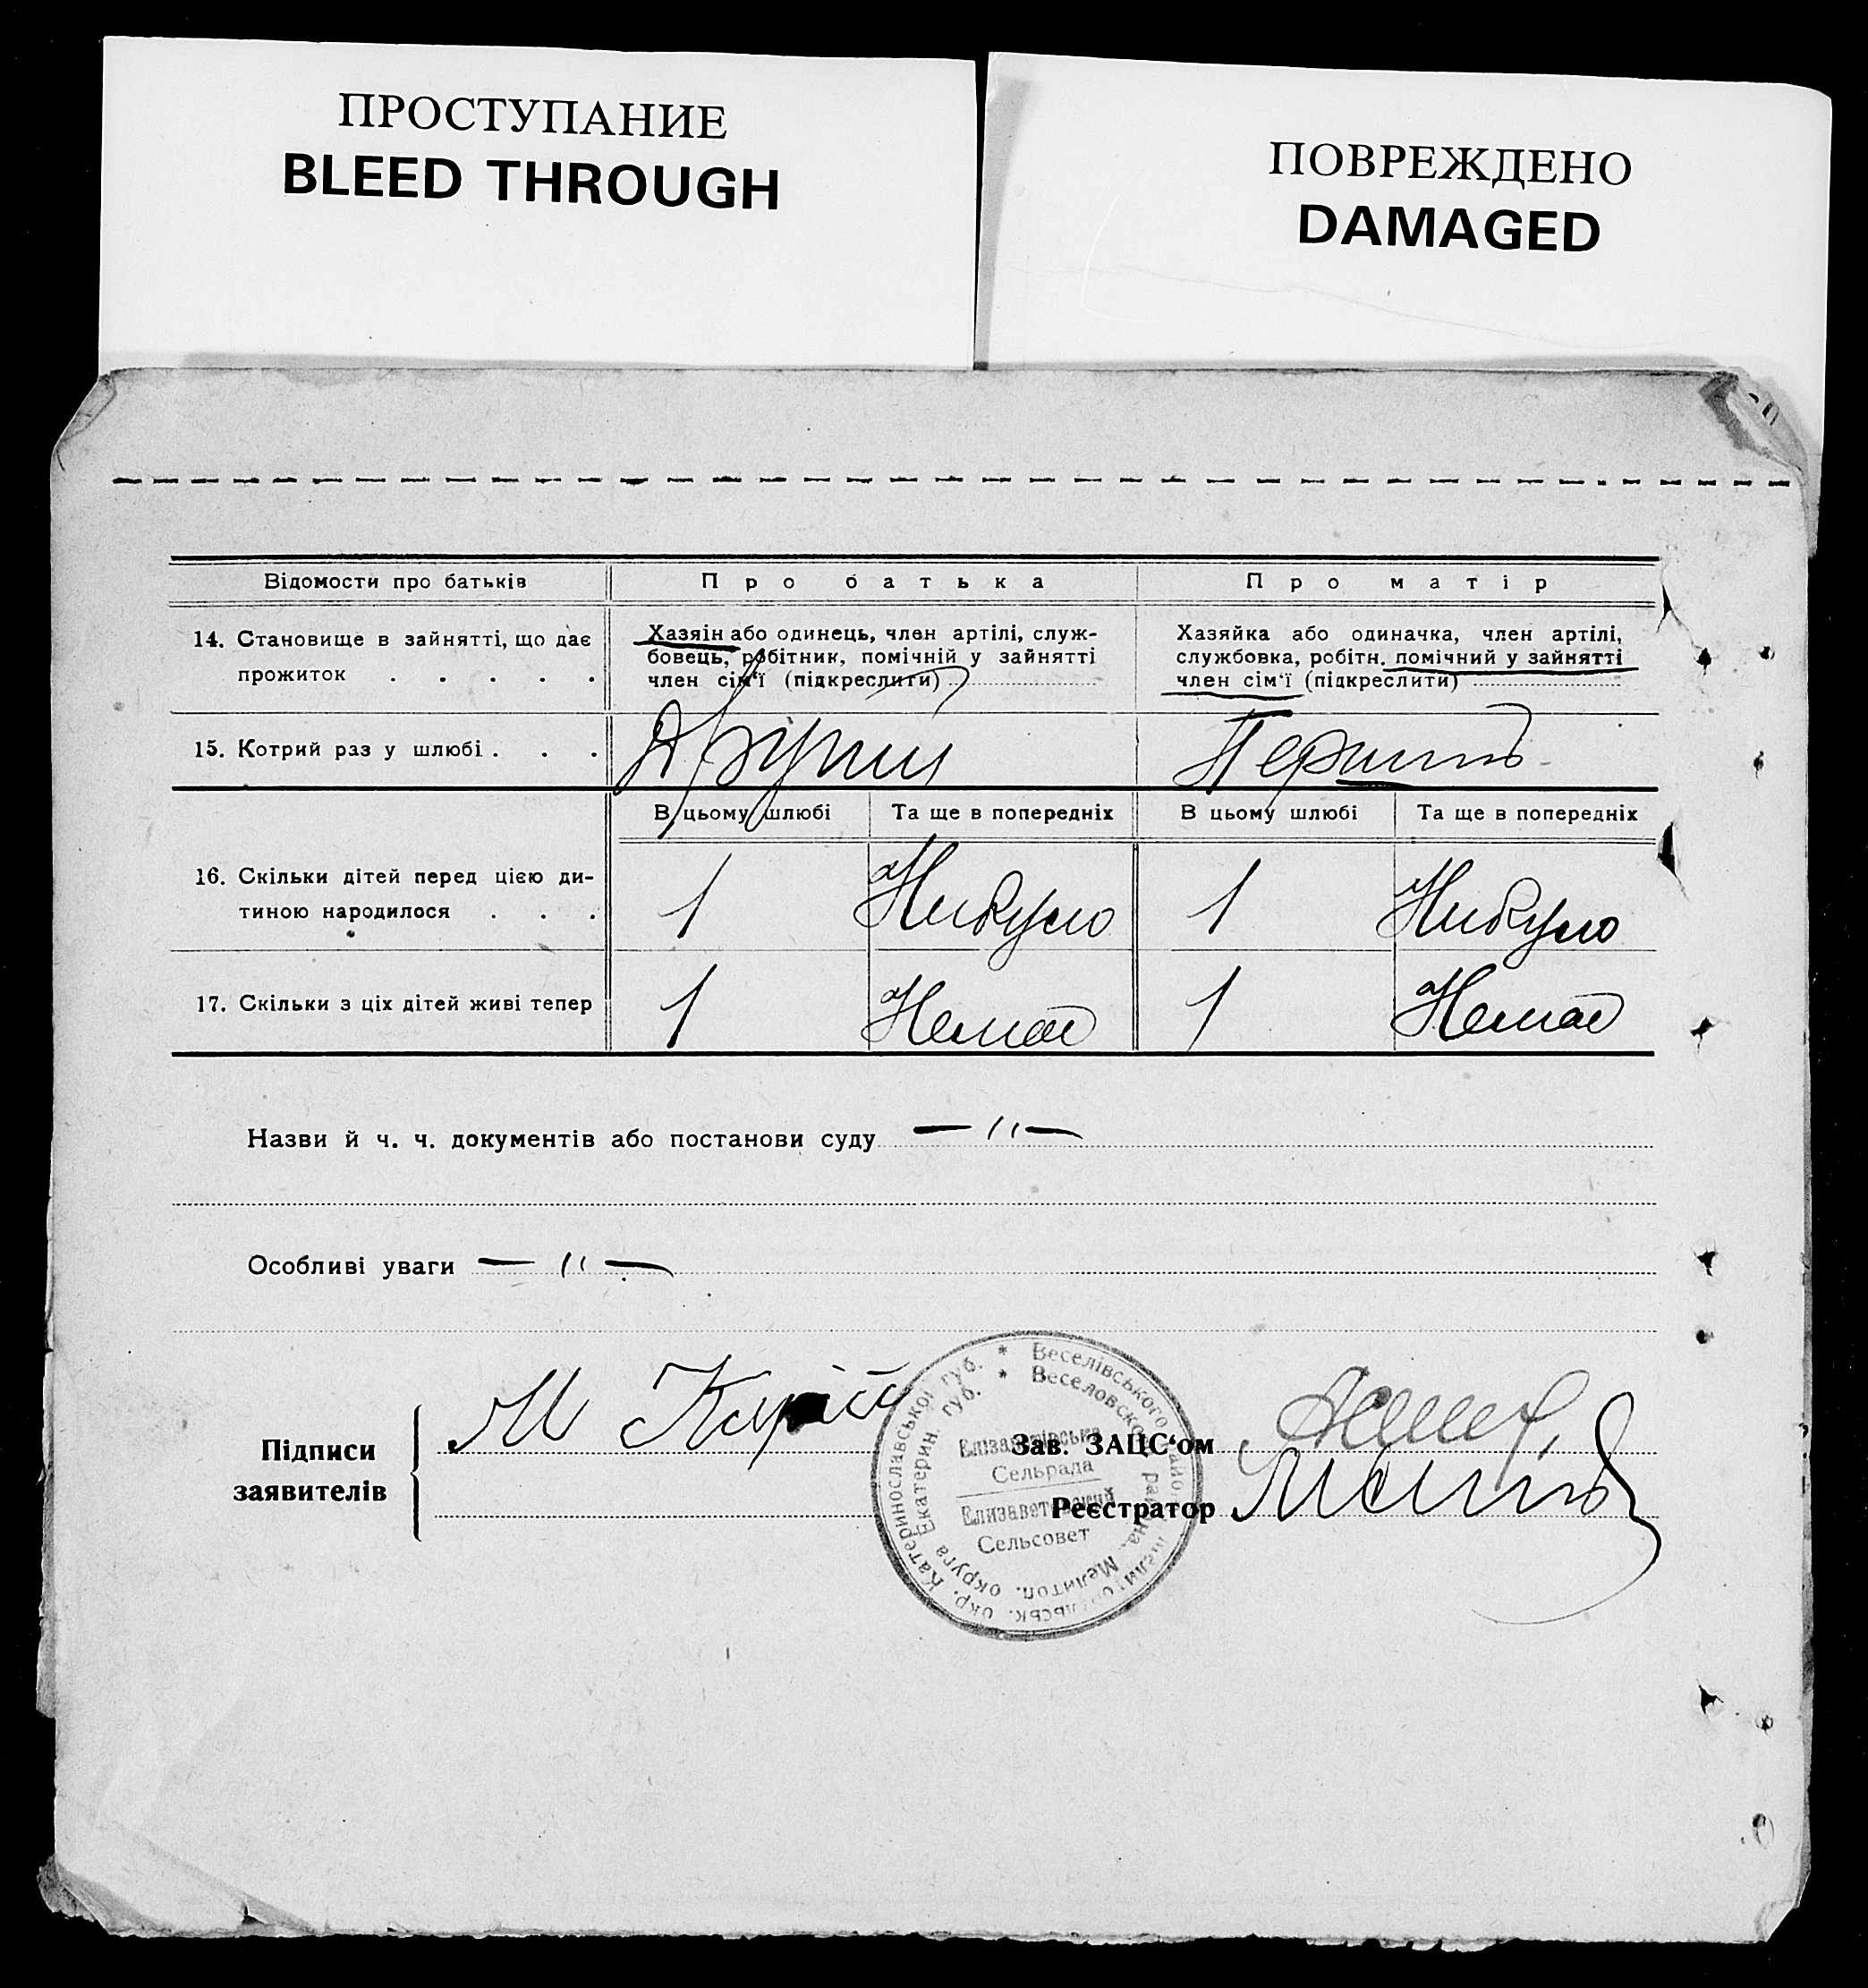 ПРОСТУПАНИЕ
BLEED THROUGH
ПОВРЕЖДЕНО
DAMAGED
Відомости про батьків
Про батька
Про матір
14. Становище в зайнятті, що дає
прожиток . . . . .
Хазяін або одинець, член артілі, служ-
бовець, робітник, помічній у зайнятті
член сім'ї (підкреслити)
Хазяйка або одиначка, член артілі,
службовка, робітн. помічний у зайнятті
член сім'ї (підкреслити)
15. Котрий раз у шлюбі . . .
Другий
Перший
В цьому шлюбі
Та ще в попередніх
В цьому шлюбі
Та ще в попередніх
16. Скільки дітей перед цією ди-
тиною народилося . . .
1
Не було
1
Не було
17. Скільки з ціх дітей живі тепер
1
Немає
1
Немає
Назви й ч. ч. документів або постанови суду — " —
Особливі уваги — " —
Підписи
заявителів
М
Веселівського району Мелитопільськ. окр. Катеринославської губ.
Веселовского района, Мелитоп. округа Екатерин. губ.
Елізаветівська
Сельрада
Елизаветовский
Сельсовет
Зав. ЗАЦС'ом
Реєстратор